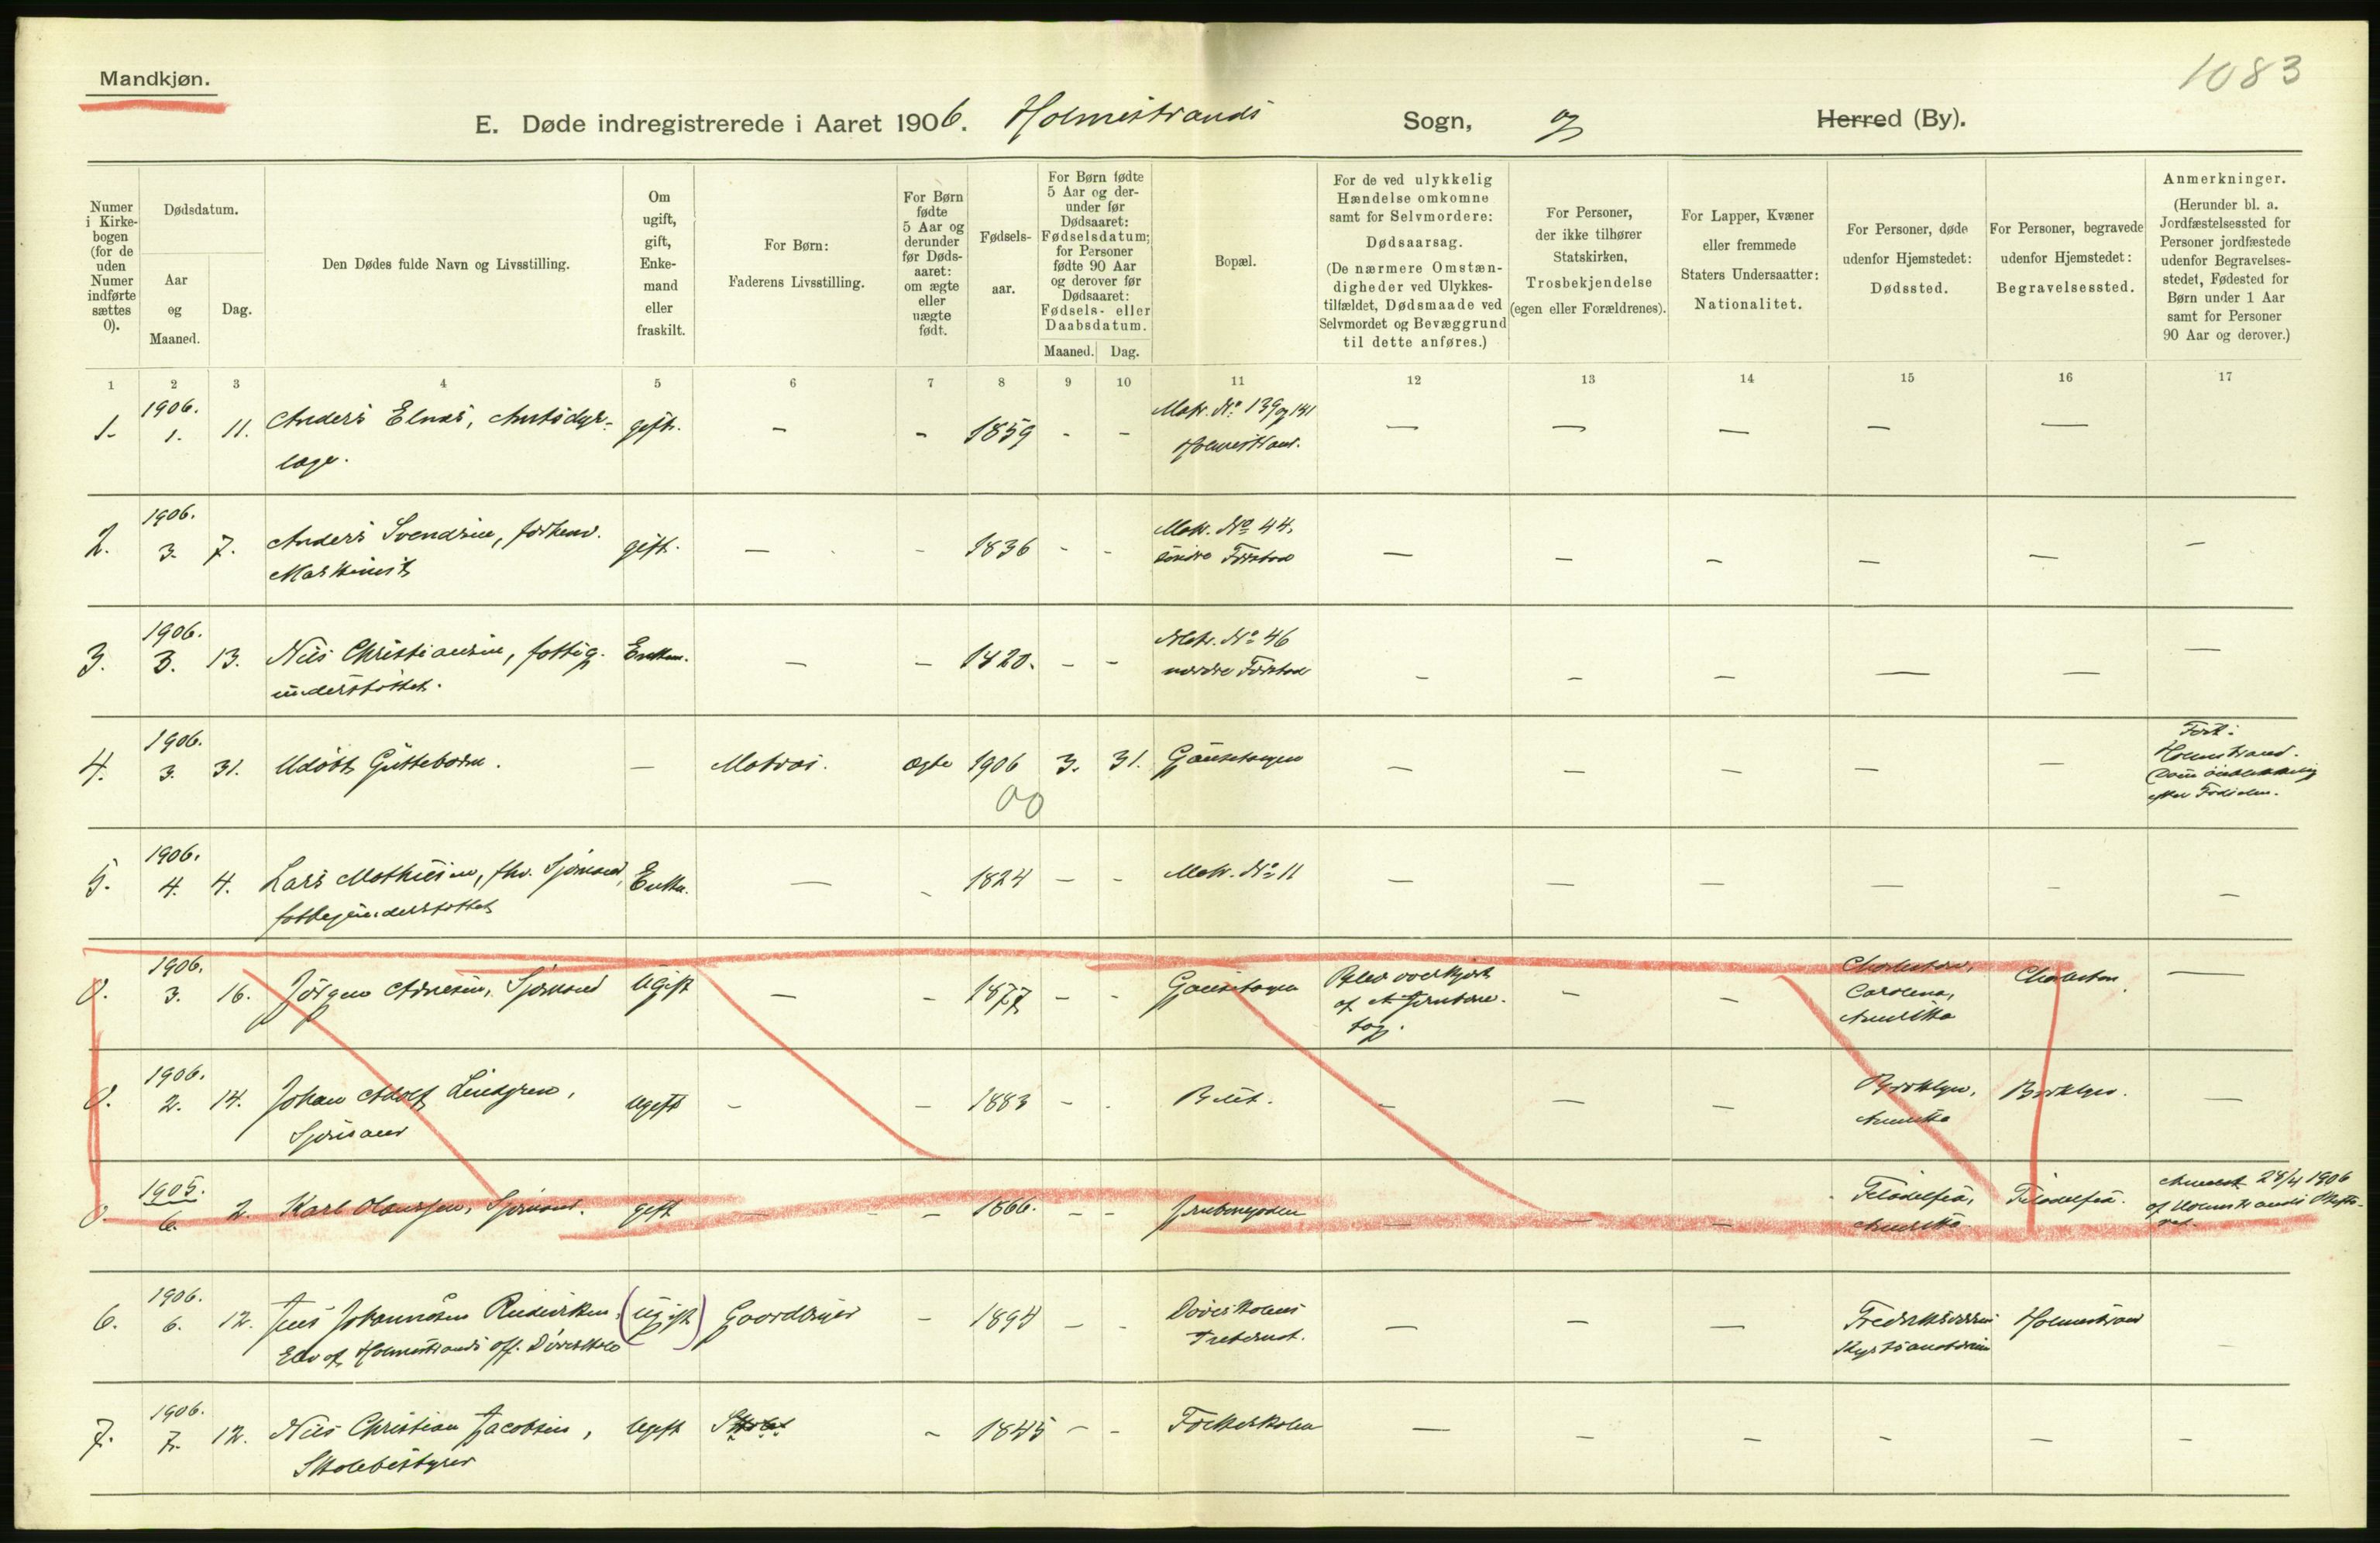 Mandkjøn.
1083
E. Døde indregistrerede i Aaret 1906. Holmestrands Sogn, og Herred (By).
Numer i Kirkebogen (for de uden Numer indførte sættes 0).
Dødsdatum.
Aar og Maaned.
Dag.
Den Dødes fulde Navn og Livsstilling.
Om ugift, gift, Enkemand eller fraskilt.
For Børn: Faderens Livsstilling.
For Børn fødte 5 Aar og derunder før Dødsaaret: om ægte eller uægte født.
Fødselsaar.
For Børn fødte 5 Aar og derunder før Dødsaaret: Fødselsdatum; for Personer fødte 90 Aar og derover før Dødsaaret: Fødsels- eller Daabsdatum.
Maaned. Dag.
Bopæl.
For de ved ulykkelig Hændelse omkomne samt for Selvmordere: Dødsaarsag. (De nærmere Omstændigheder ved Ulykkestilfældet, Dødsmaade ved Selvmordet og Bevæggrund til dette anføres.)
For Personer, der ikke tilhører Statskirken, Trosbekjendelse (egen eller Forældrenes).
For Lapper, Kvæner eller fremmede Staters Undersaatter: Nationalitet.
For Personer, døde udenfor Hjemstedet: Dødssted.
For Personer, begravede udenfor Hjemstedet: Begravelsessted.
Anmerkninger. (Herunder bl. a. Jordfæstelsessted for Personer jordfæstede udenfor Begravelsesstedet, Fødested for Børn under 1 Aar samt for Personer 90 Aar og derover.)
1 2 3 4 5 6 7 8 9 10 11 12 13 14 15 16 17
1. 1906. 1. 11. Anders Elnæs, Amtsdyrlæge. gift. - - 1859 - - Matr. No 139 og 141 Holmestrand. - - - - -
2. 1906. 3. 7. Anders Svendsen, forhenv. Maskinist gift. - - 1836 - - Matr. No 44, søndre Forstad - - - - - -
3. 1906. 3. 13. Nils Christiansen, fattigunderstøttet. Enkem. - - 1820. - - Matr. No 46 nordre Forstad - - - - - -
4. 1906. 3. 31. Udøbt Guttebarn. - Matros. ægte 1906 3. 31. Gausetangen - - - - - Født i Holmestrand. (Døde øieblikkelig efter Fødselen.
00
5. 1906. 4. 4. Lars Mathisen, fhv. Sjømand, fattigunderstøttet Enkem. - - 1824 - - Matr. No 11 - - - - - -
0. 1906. 3. 16. Jörgen Arnesen, Sjømand Ugift - - 1877 - - Gausetangen Blev overkjørt af et Jernbanetog. - - Charleston, Carolina, Amerika Charleston. -
0. 1906. 2. 14. Johan Adolf Lindgren, Sjømand ugift - - 1883 - - - - - Broklyn, Amerika Broklyn. -
0. 1905. 6. 2. Karl Olaussen, Sjømand. gift - - 1866. - - Jernbanegaden - - - Filadelfia, Amerika Filadelfia. Anmeldt 28/4 1906 af Holmestrands Skifteret.
6. 1906. 6. 12. Jens Johannesen Elev af Holmestrands off. Døveskole (ugift) Gaardbruger - 1894 - - Døveskolens - - - Holmestrand -
7. 1906. 7. 12. Nils Christian Jacobsen, Skolebestyrer Ugift - 1845 - - - - - - - -